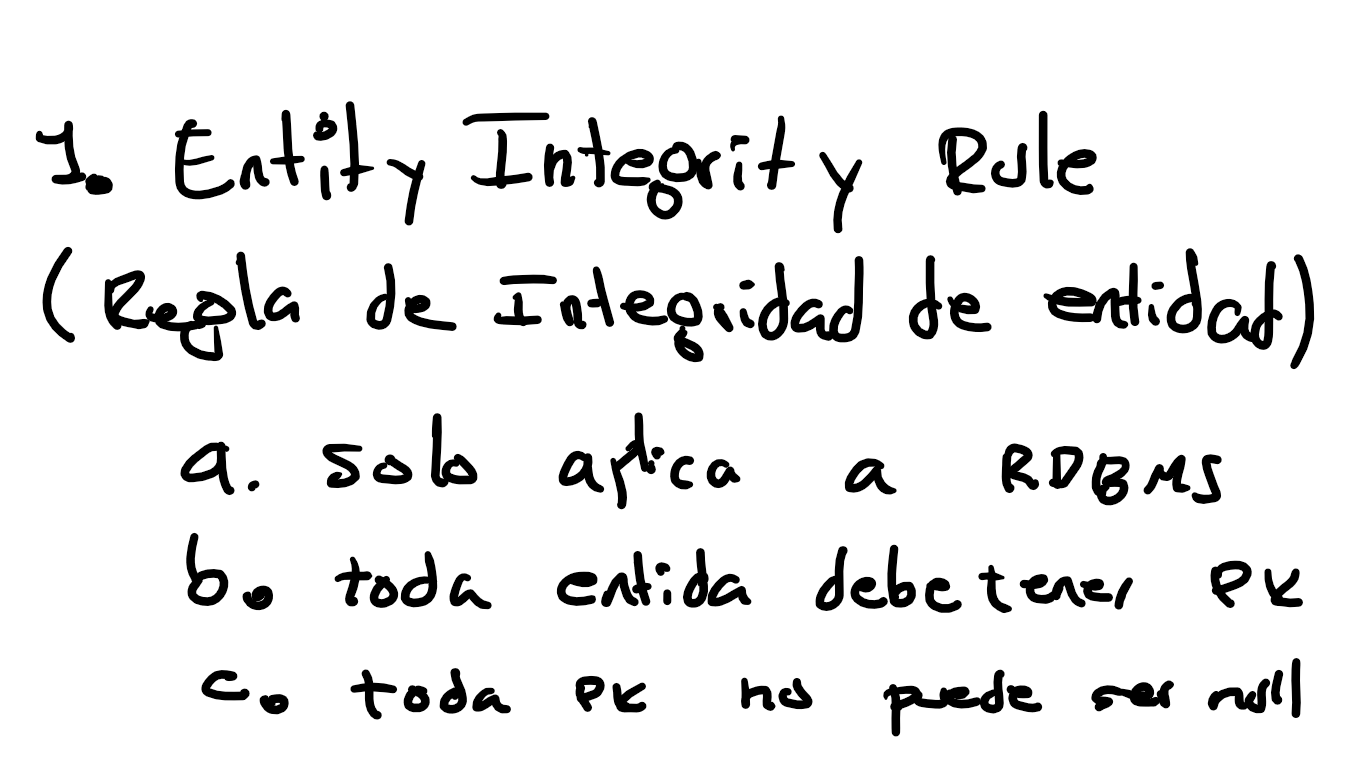 1. Entity Integrity Rule
(Regla de Integridad de entidad)
a. solo aplica a RDBMS
b. toda entida debe tener PK
c. toda PK no puede ser null